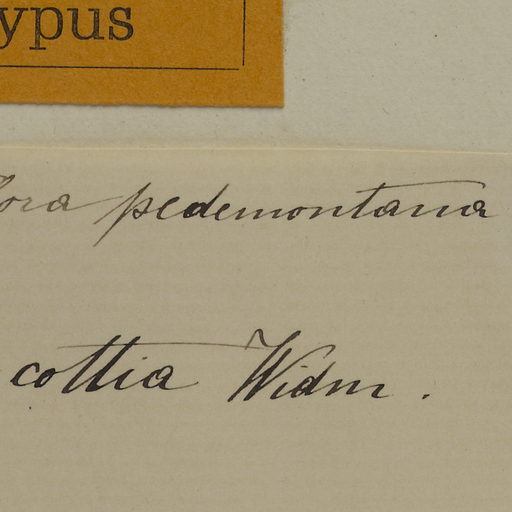 ypus
lora pedemontana
cottia Widm.